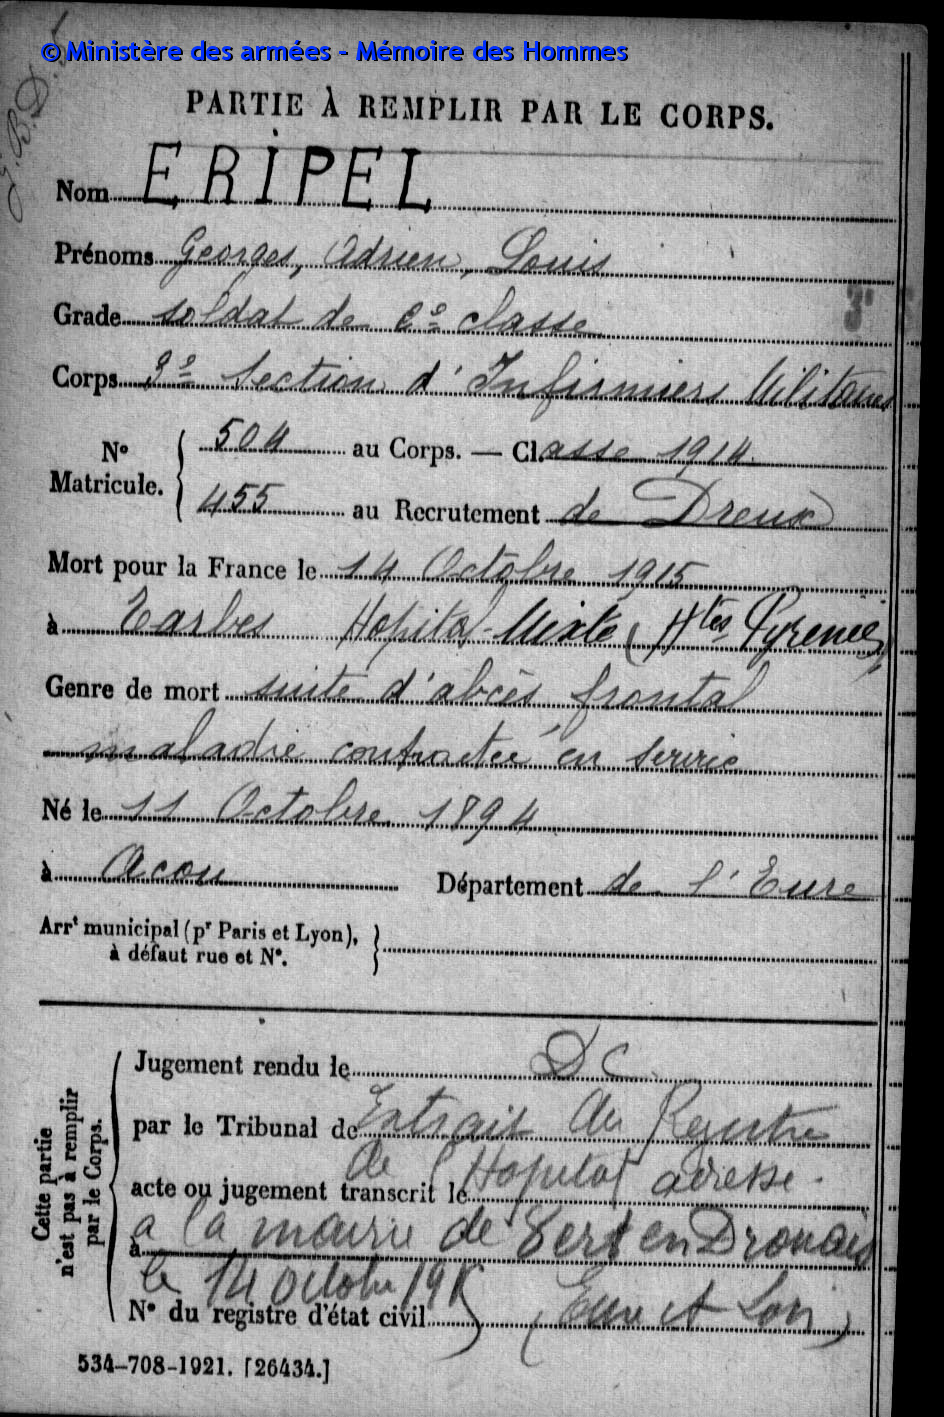 © Ministère des armées - Mémoire des Hommes
PARTIE À REMPLIR PAR LE CORPS.
Nom ERIPEL
Prénoms Georges, Adrien, Louis
Grade soldat de 2e classe
3e
Corps 3e Section d'Infirmiers Militaires
No Matricule. 504 au Corps. — Classe 1914
455 au Recrutement de Dreux
Mort pour la France le 14 Octobre 1915
à Tarbes Hopital Mixte (Htes Pyrenées)
Genre de mort suite d'abcès frontal
maladie contractée en service
Né le 11 Octobre 1894
à Acou Département de l'Eure
Arrt municipal (pr Paris et Lyon),
à défaut rue et No.
Cette partie
n'est pas à remplir
par le Corps.
Jugement rendu le DC
par le Tribunal de Extrait du Registre
de l'Hopital adressé
acte ou jugement transcrit le
à la mairie de Vert en Drouais
le 14 octobre 1915
No du registre d'état civil (Eure et Loir)
534-708-1921. [26434.]